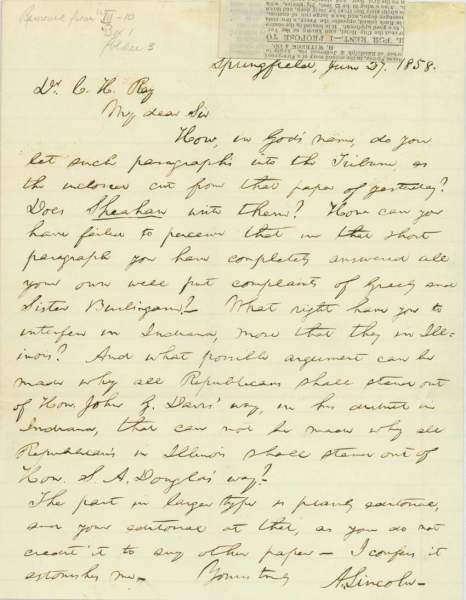 Removed from III-10
Box 1
folder 3
FOR RENT—I PROPOSE TO
Springfield, June 27. 1858.
Dr. C. H. Ray
My dear Sir
How, in God's name, do you
let such paragraphs into the Tribune, as
the inclosed cut from that paper of yesterday?
Does Sheahan write them? How can you
have failed to perceive that in that short
paragraph you have completely answered all
your own well put complaints of Greely and
Sister Burlingame? What right have you to
interfere in Indiana, more than they in Ill-
inois? And what possible argument can be
made why all Republicans shall stand out
of Hon. John G. Davis' way, in his district in
Indiana, that can not be made why all
Republicans in Illinois shall stand out of
Hon. S. A. Douglas' way?
The part in larger type is plainly editorial,
and your editorial at that, as you do not
credit it to any other paper— I confess it
astonishes me—
Yours truly
A. Lincoln—